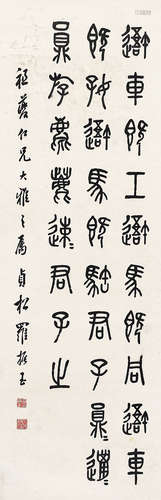 䢒車既工䢒馬既同䢒車
既好䢒馬既駓君子員邋
員斿麀鹿速君子之
仁兄大雅之屬貞松羅振玉